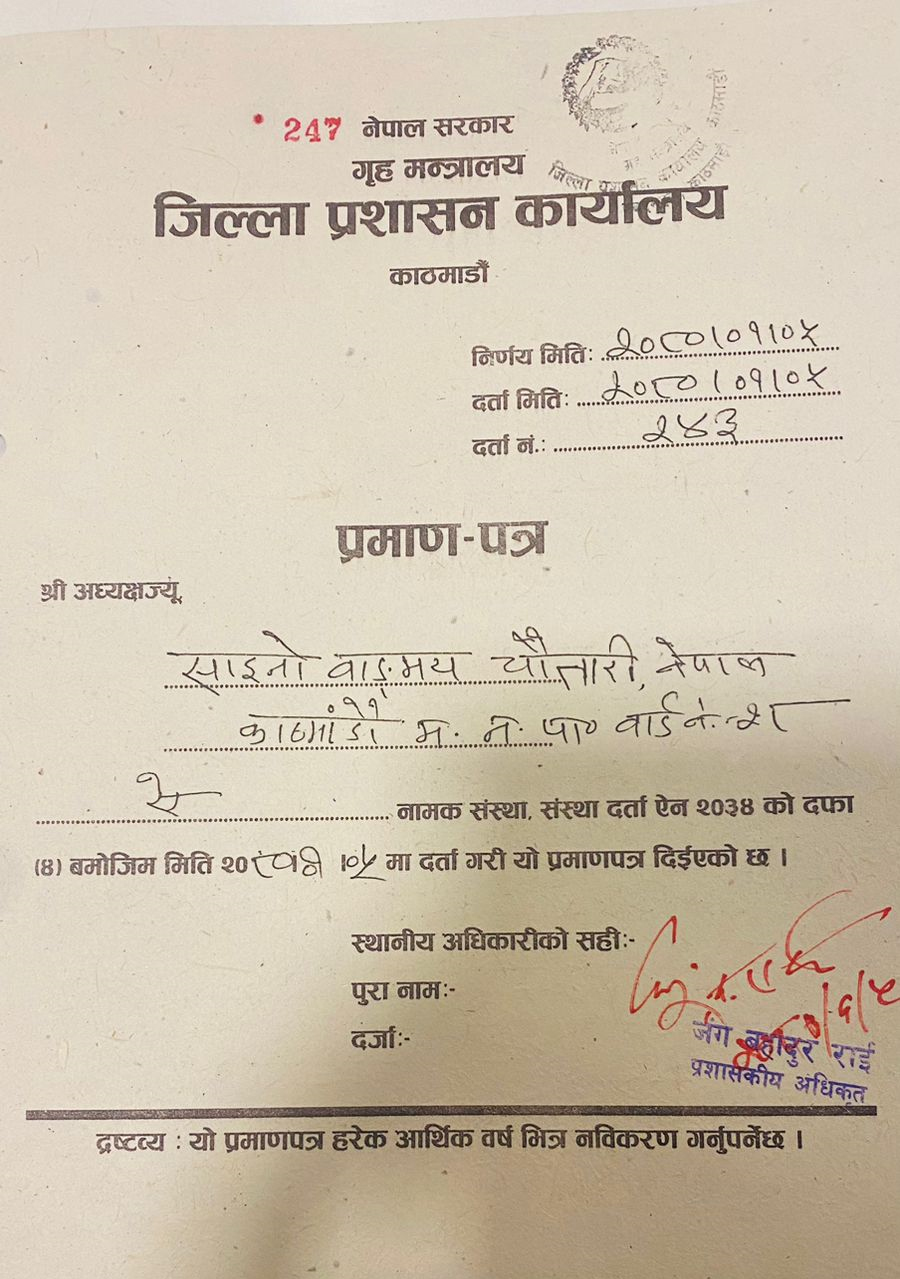 247 नेपाल सरकार
गृह मन्त्रालय
जिल्ला प्रशासन कार्यालय
काठमाडौं
निर्णय मितिः २०८०।०१।०५
दर्ता मितिः २०८०।०१।०५
दर्ता नं.: २४३
प्रमाण-पत्र
श्री अध्यक्षज्यूं,
साइनो वाङ्मय चौतारी, नेपाल
काठमांडौं म. न. पा० वार्ड नं.
नामक संस्था, संस्था दर्ता ऐन २०३४ को दफा
(४) बमोजिम मिति २० ।०५ मा दर्ता गरी यो प्रमाणपत्र दिईएको छ ।
स्थानीय अधिकारीको सहीः-
पुरा नामः-
दर्जाः-
जंग बहादुर राई
प्रशासकीय अधिकृत
द्रष्टव्य : यो प्रमाणपत्र हरेक आर्थिक वर्ष भित्र नविकरण गर्नुपर्नेछ ।